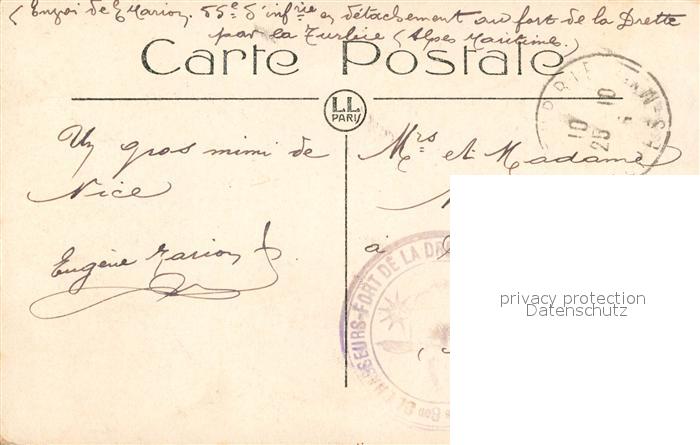 (Envoi de E Marion. 55e d'infrie en détachement au fort de la Drette
par la Turbie (Alpes Maritimes.)
Carte Postale
L.L.
PARIS
Un gros mimi de
Nice
Eugène Marion
Mrs et Madame
à
SEURS-FORT DE LA DR
10
25
10
privacy protection
Datenschutz